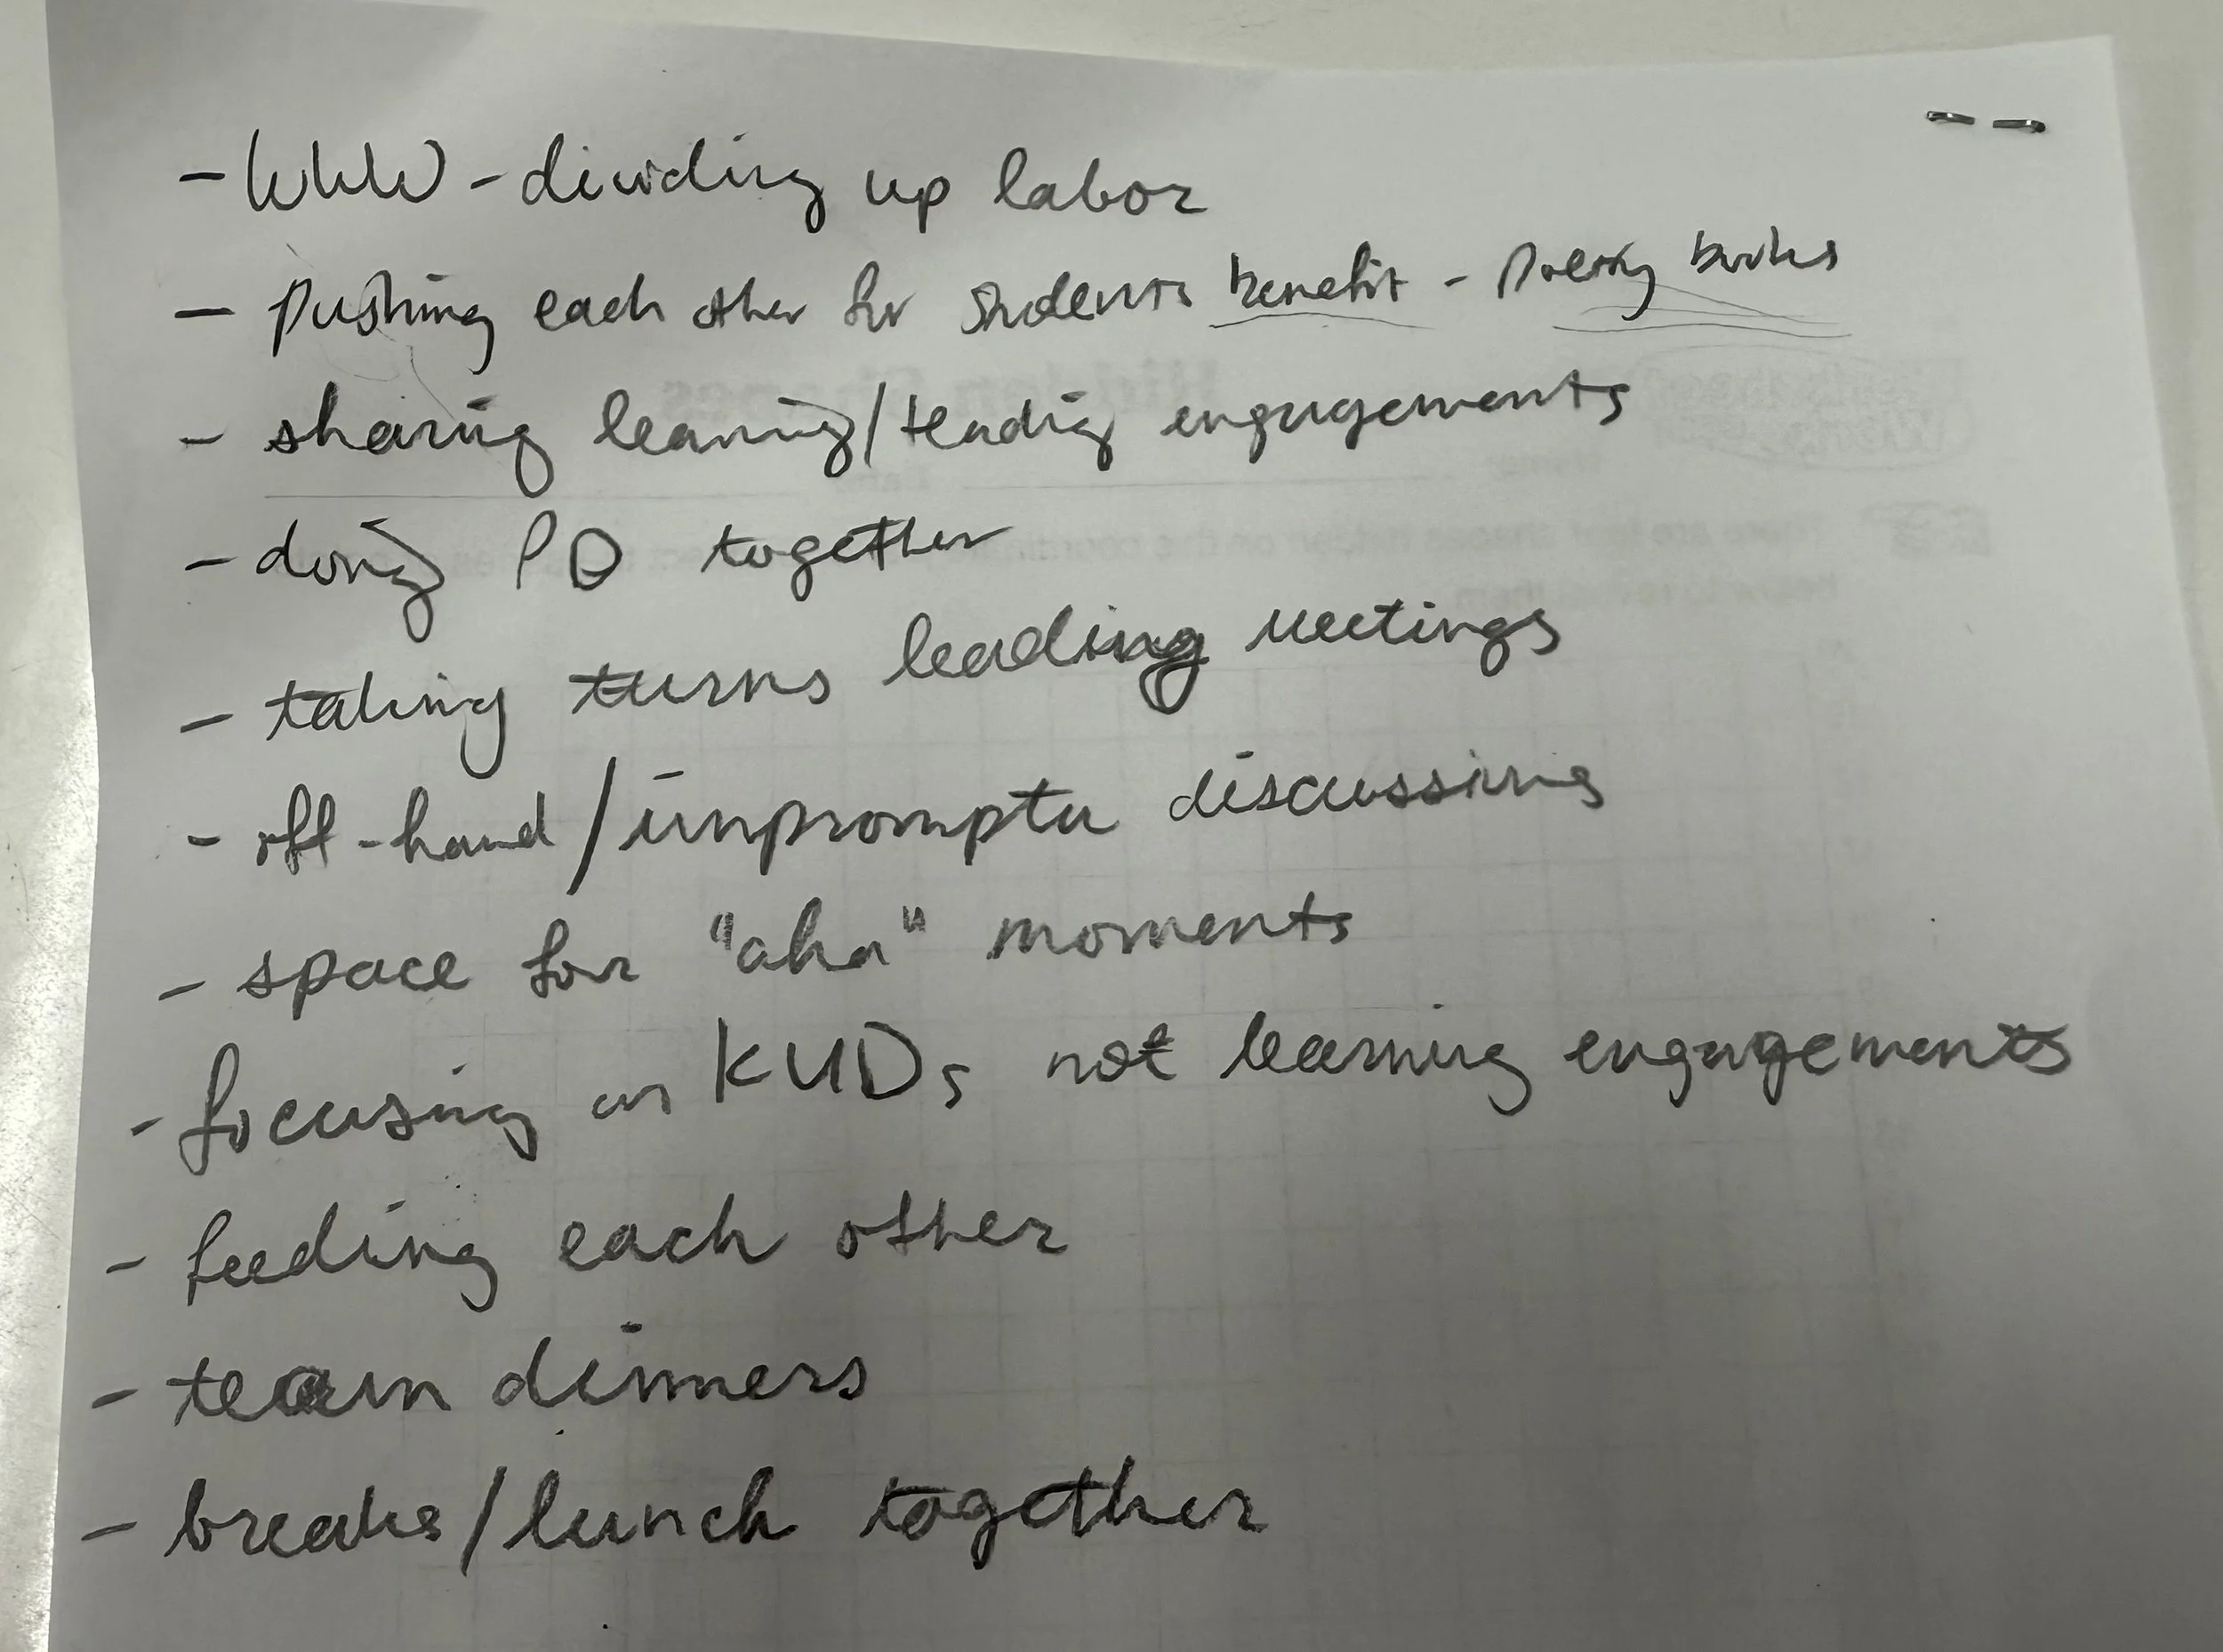 - WWW - dividing up labor
- pushing each other for students benefit - poetry books
- sharing learning/teaching engagements
- doing PD together
- taking turns leading meetings
- off-hand/impromptu discussions
- space for "aha" moments
- focusing on KUDs not learning engagements
- feeding each other
- team dinners
- breaks/lunch together